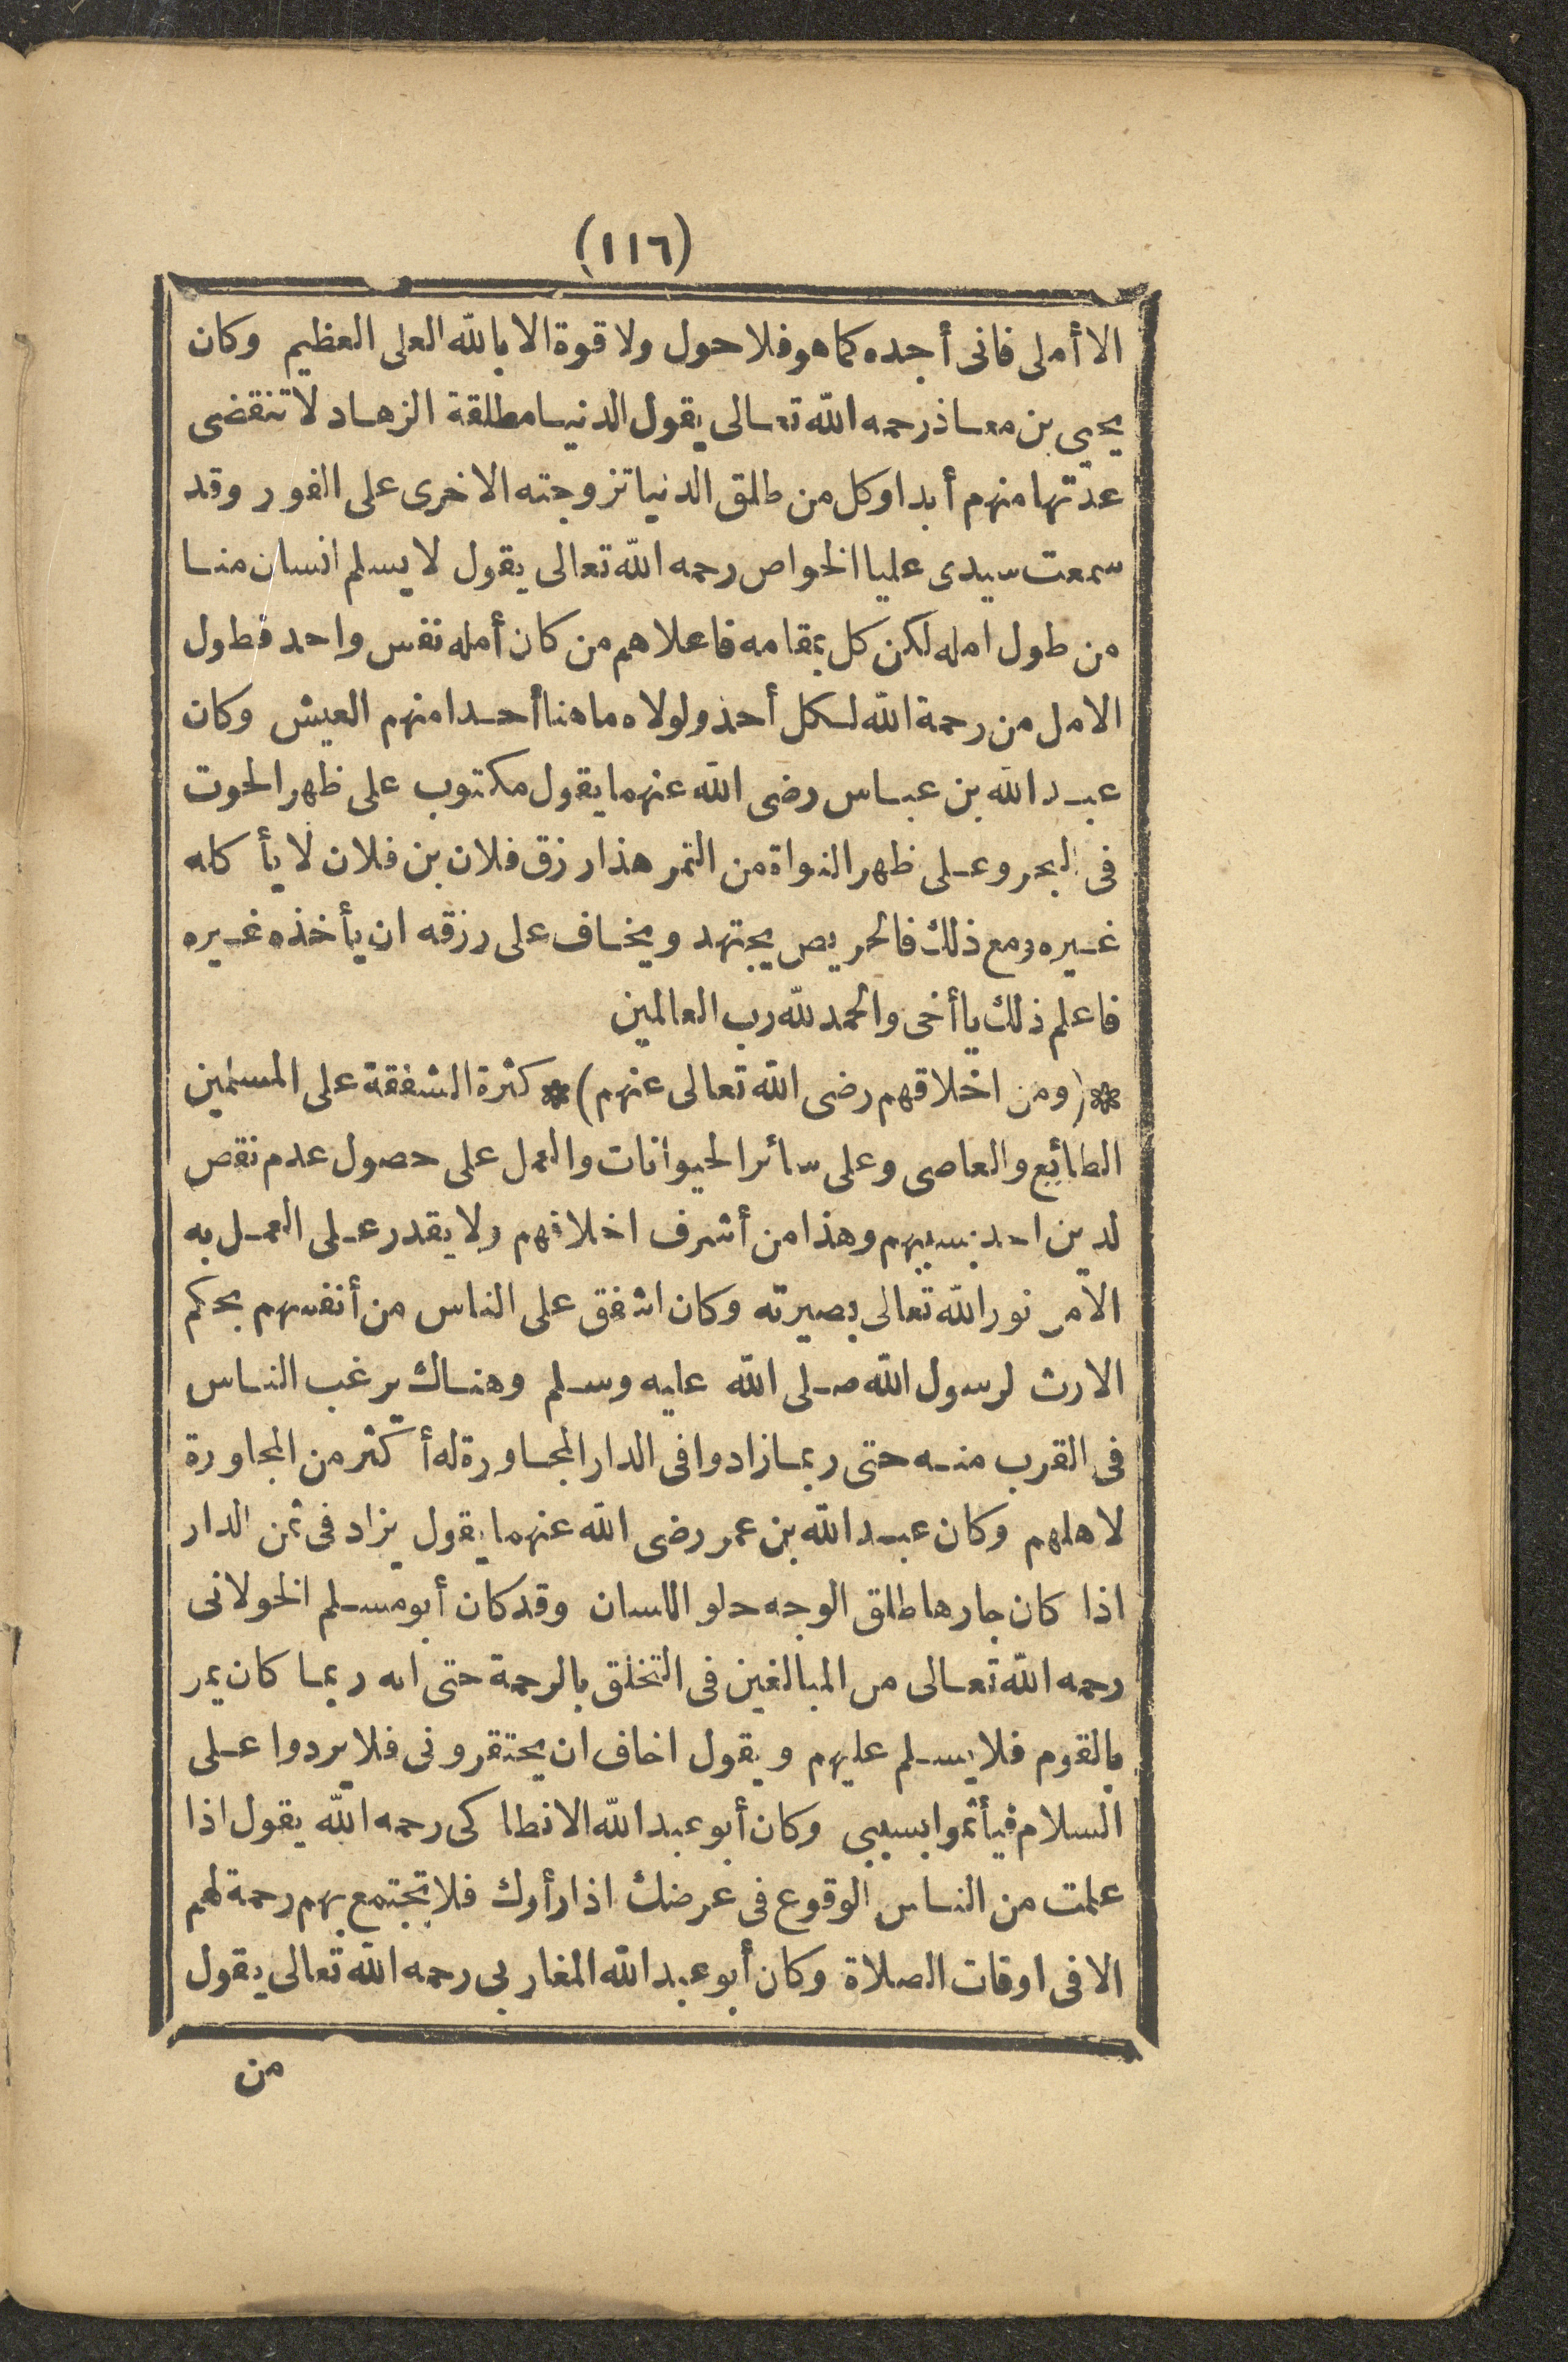 (١١٦)
الا أملى فانى أجده كما هو فلا حول ولا قوة الا بالله العلى العظيم وكان
يحيى بن معاذ رحمه الله تعالى يقول الدنيا مطلقة الزهاد لا تنقضى
عدتها منهم أبدا وكل من طلق الدنيا تزوجته الاخرى على الفور وقد
سمعت سيدى عليا الخواص رحمه الله تعالى يقول لا يسلم انسان منا
من طول امله لكن كل بمقامه فاعلاهم من كان أمله نفس واحد فطول
الامل من رحمة الله لكل أحد ولولاه ما هنا أحدا منهم العيش وكان
عبد الله بن عباس رضى الله عنهما يقول مكتوب على ظهر الحوت
فى البحر وعلى ظهر النواة من التمر هذا رزق فلان بن فلان لا يأكله
غيره ومع ذلك فالحريص يجتهد ويخاف على رزقه ان يأخذه غيره
فاعلم ذلك يا أخى والحمد لله رب العالمين
*(ومن اخلاقهم رضى الله تعالى عنهم)* كثرة الشفقة على المسلمين
الطائع والعاصى وعلى سائر الحيوانات والعمل على حصول عدم نقص
لدين احد بسببهم وهذا من أشرف اخلاقهم ولا يقدر على العمل به
الا من نور الله تعالى بصيرته وكان اشفق على الناس من أنفسهم بحكم
الارث لرسول الله صلى الله عليه وسلم وهناك يرغب الناس
فى القرب منه حتى ربما زادوا فى الدار المجاورة له أكثر من المجاورة
لاهلهم وكان عبد الله بن عمر رضى الله عنهما يقول يزاد فى ثمن الدار
اذا كان جارها طلق الوجه حلو اللسان وقد كان أبو مسلم الخولانى
رحمه الله تعالى من المبالغين فى التخلق بالرحمة حتى انه ربما كان يمر
بالقوم فلا يسلم عليهم ويقول اخاف ان يحتقرونى فلا يردوا على
السلام فيأثموا بسببى وكان أبو عبد الله الانطاكى رحمه الله يقول اذا
علمت من الناس الوقوع فى عرضك اذا رأوك فلا تجتمع بهم رحمة لهم
الا فى اوقات الصلاة وكان أبو عبد الله المغاربى رحمه الله تعالى يقول
من